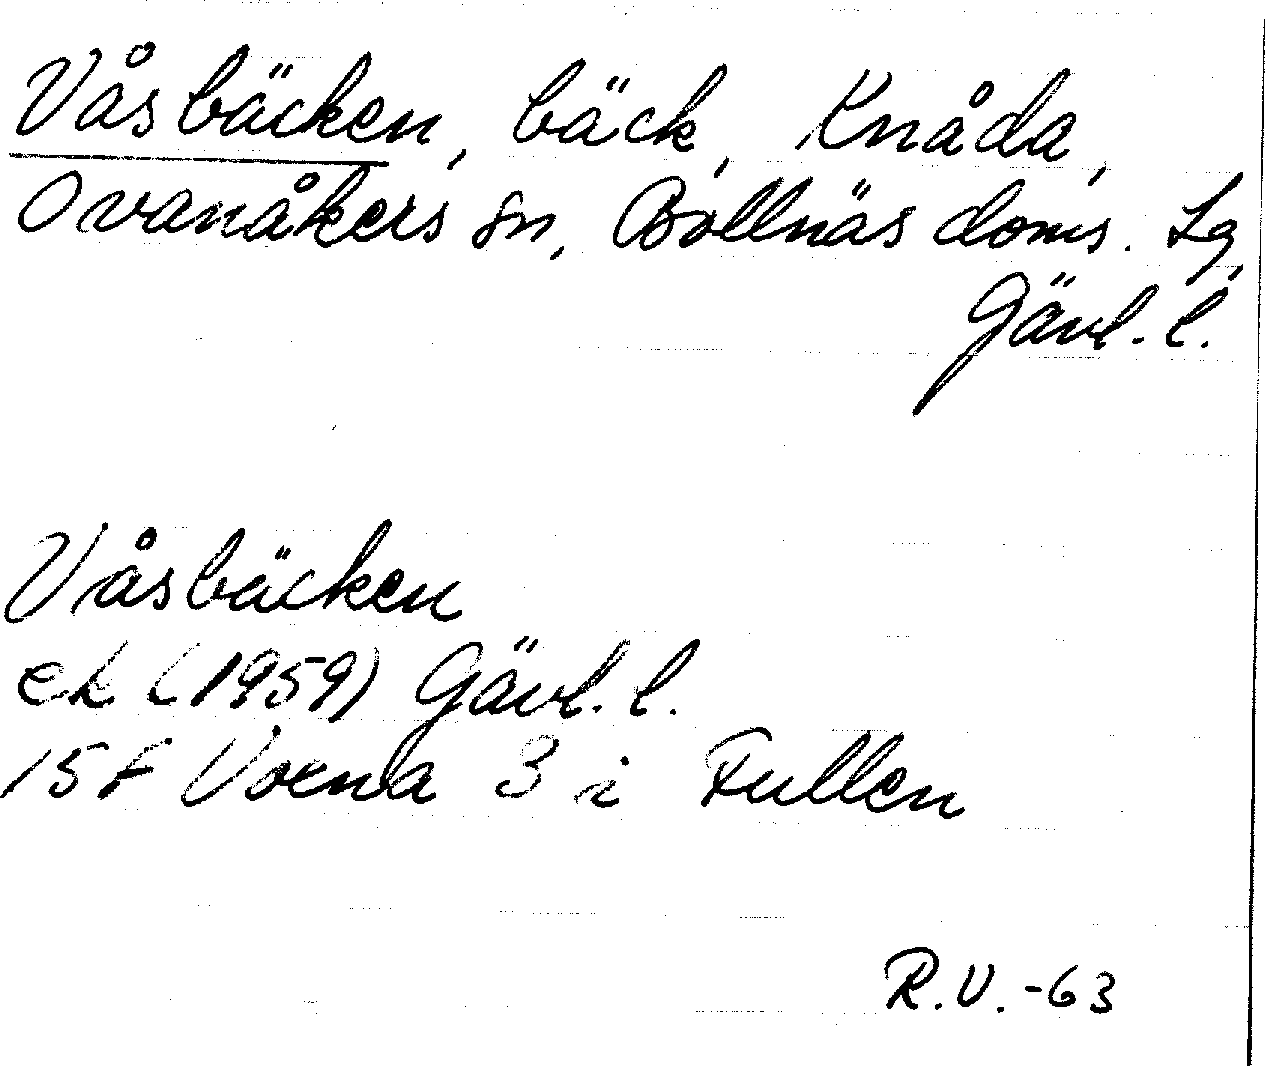 Våsbäcken, bäck, Knåda,
Ovanåkers sn, Bollnäs doms. Lg,
Gävl. l.
Våsbäcken
ek (1959) Gävl. l.
15 F Voxna 3 i Fullen
R.V. -63